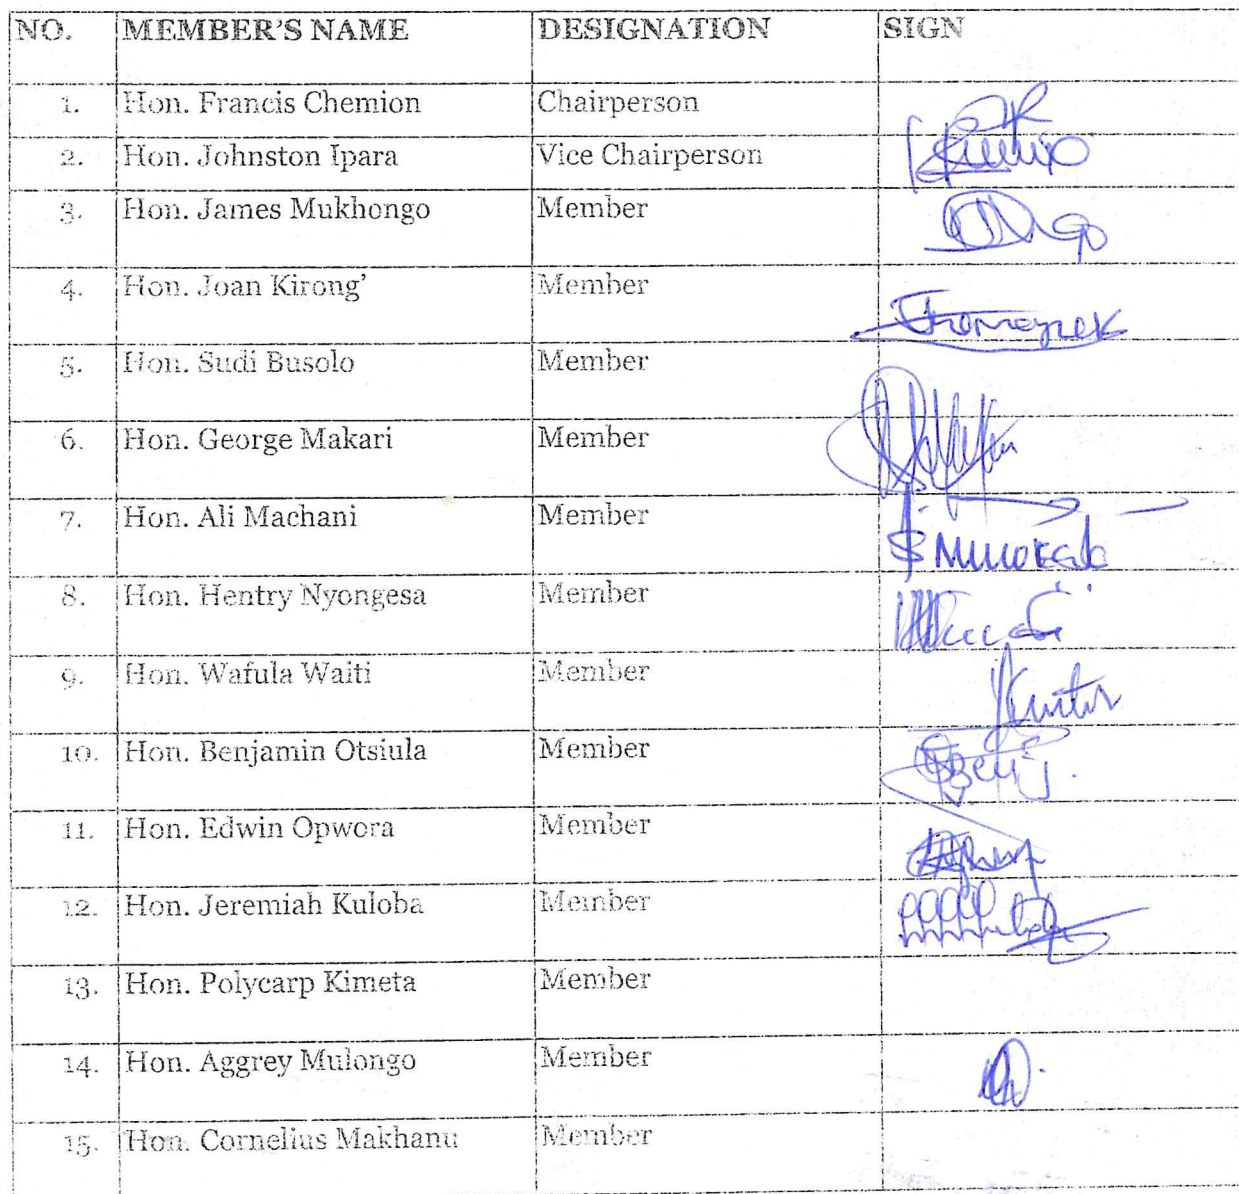 NO. MEMBER'S NAME DESIGNATION SIGN
1. Hon. Francis Chemion Chairperson
2. Hon. Johnston Ipara Vice Chairperson
3. Hon. James Mukhongo Member
4. Hon. Joan Kirong' Member
5. Hon. Sudi Busolo Member
6. Hon. George Makari Member
7. Hon. Ali Machani Member
8. Hon. Hentry Nyongesa Member
9. Hon. Wafula Waiti Member
10. Hon. Benjamin Otsiula Member
11. Hon. Edwin Opwora Member
12. Hon. Jeremiah Kuloba Member
13. Hon. Polycarp Kimeta Member
14. Hon. Aggrey Mulongo Member
15. Hon. Cornelius Makhanu Member